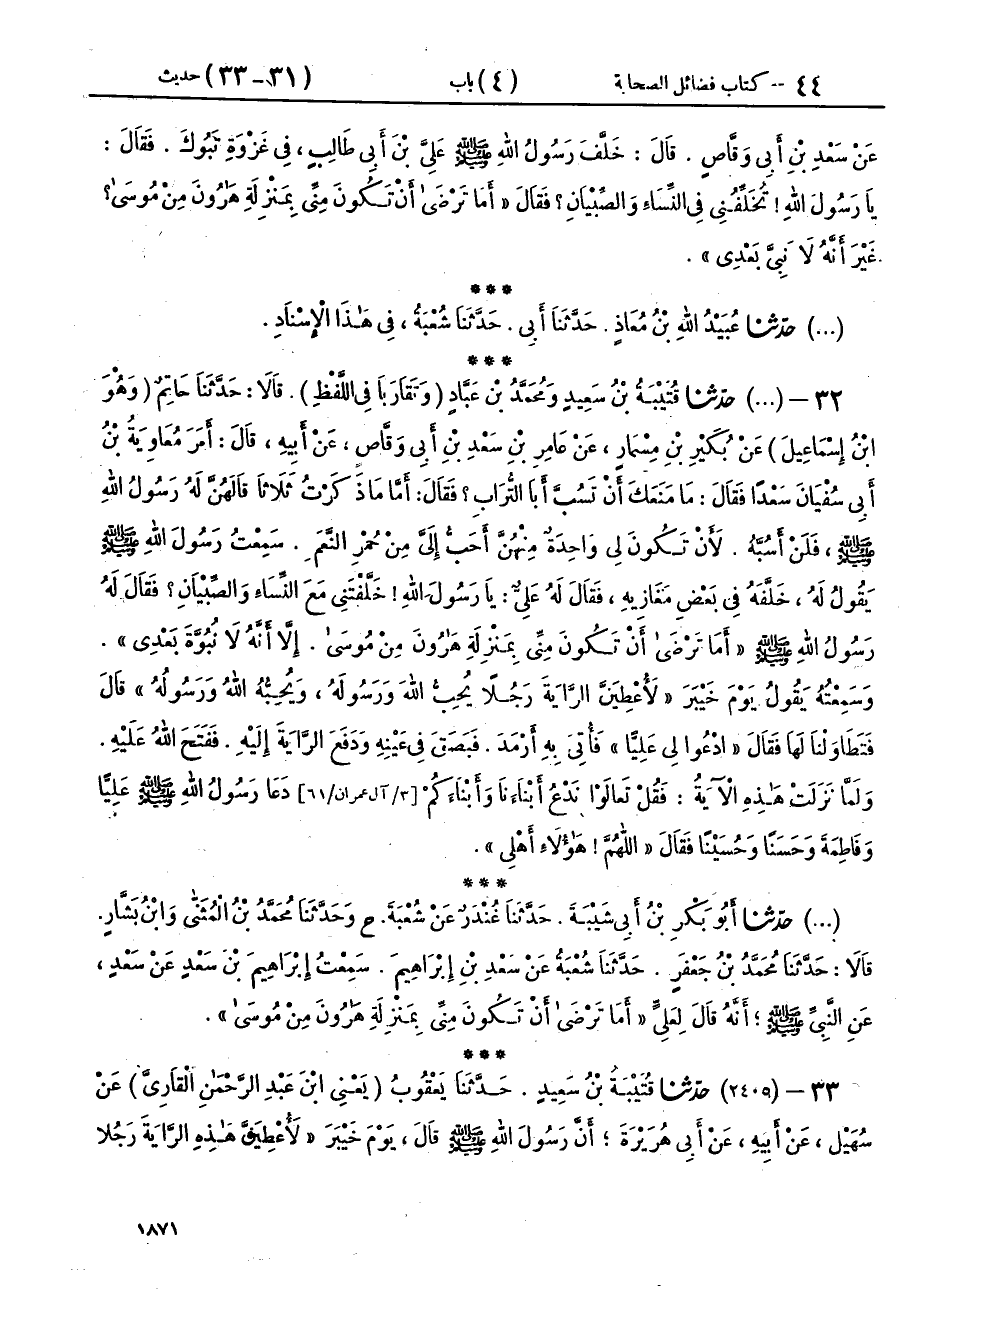 ٤٤ -- كتاب فضائل الصحابة (٤) باب (٣١-٣٣) حديث
عَنْ سَعْدِ بْنِ أَبِى وَقَّاصٍ . قَالَ : خَلَّفَ رَسُولُ اللهِ ﷺ عَلِىَّ بْنَ أَبِى طَالِبٍ ، فِى غَزْوَةِ تَبُوكَ . فَقَالَ :
يَا رَسُولَ اللهِ ! تُخَلِّفُنِى فِى النِّسَاءِ وَالصِّبْيَانِ ؟ فَقَالَ « أَمَا تَرْضَىٰ أَنْ تَكُونَ مِنِّى بِمَنْزِلَةِ هَارُونَ مِنْ مُوسَىٰ ؟
غَيْرَ أَنَّهُ لَا نَبِىَّ بَعْدِى » .
***
(...) حَدَّثَنَا عُبَيْدُ اللهِ بْنُ مُعَاذٍ . حَدَّثَنَا أَبِى . حَدَّثَنَا شُعْبَةُ ، فِى هَـٰذَا الْإِسْنَادِ .
***
٣٢ – (...) حَدَّثَنَا قُتَيْبَةُ بْنُ سَعِيدٍ وَمُحَمَّدُ بْنُ عَبَّادٍ ( وَتَقَارَبَا فِى اللَّفْظِ ) . قَالَا : حَدَّثَنَا حَاتِمٌ ( وَهُوَ
ابْنُ إِسْمَاعِيلَ ) عَنْ بُكَيْرِ بْنِ مِسْمَارٍ ، عَنْ عَامِرِ بْنِ سَعْدِ بْنِ أَبِى وَقَّاصٍ ، عَنْ أَبِيهِ ، قَالَ : أَمَرَ مُعَاوِيَةُ بْنُ
أَبِى سُفْيَانَ سَعْدًا فَقَالَ : مَا مَنَعَكَ أَنْ تَسُبَّ أَبَا التُّرَابِ ؟ فَقَالَ : أَمَّا مَا ذَكَرْتُ ثَلَاثًا قَالَهُنَّ لَهُ رَسُولُ اللهِ
ﷺ ، فَلَنْ أَسُبَّهُ . لَأَنْ تَكُونَ لِى وَاحِدَةٌ مِنْهُنَّ أَحَبُّ إِلَىَّ مِنْ حُمْرِ النَّعَمِ . سَمِعْتُ رَسُولَ اللهِ ﷺ
يَقُولُ لَهُ ، خَلَّفَهُ فِى بَعْضِ مَغَازِيهِ ، فَقَالَ لَهُ عَلِىٌّ : يَا رَسُولَ اللهِ ! خَلَّفْتَنِى مَعَ النِّسَاءِ وَالصِّبْيَانِ ؟ فَقَالَ لَهُ
رَسُولُ اللهِ ﷺ « أَمَا تَرْضَىٰ أَنْ تَكُونَ مِنِّى بِمَنْزِلَةِ هَارُونَ مِنْ مُوسَىٰ . إِلَّا أَنَّهُ لَا نُبُوَّةَ بَعْدِى » .
وَسَمِعْتُهُ يَقُولُ يَوْمَ خَيْبَرَ « لَأُعْطِيَنَّ الرَّايَةَ رَجُلًا يُحِبُّ اللهَ وَرَسُولَهُ ، وَيُحِبُّهُ اللهُ وَرَسُولُهُ » قَالَ
فَتَطَاوَلْنَا لَهَا فَقَالَ « ادْعُوا لِى عَلِيًّا » فَأُتِىَ بِهِ أَرْمَدَ . فَبَصَقَ فِى عَيْنِهِ وَدَفَعَ الرَّايَةَ إِلَيْهِ . فَفَتَحَ اللهُ عَلَيْهِ .
وَلَمَّا نَزَلَتْ هَـٰذِهِ الْآيَةُ : فَقُلْ تَعَالَوْا نَدْعُ أَبْنَاءَنَا وَأَبْنَاءَكُمْ [٣/آل عمران/٦١] دَعَا رَسُولُ اللهِ ﷺ عَلِيًّا
وَفَاطِمَةَ وَحَسَنًا وَحُسَيْنًا فَقَالَ « اللَّهُمَّ ! هَـٰؤُلَاءِ أَهْلِى » .
***
(...) حَدَّثَنَا أَبُو بَكْرِ بْنُ أَبِى شَيْبَةَ . حَدَّثَنَا غُنْدَرٌ عَنْ شُعْبَةَ . ح وَحَدَّثَنَا مُحَمَّدُ بْنُ الْمُثَنَّىٰ وَابْنُ بَشَّارٍ .
قَالَا : حَدَّثَنَا مُحَمَّدُ بْنُ جَعْفَرٍ . حَدَّثَنَا شُعْبَةُ عَنْ سَعْدِ بْنِ إِبْرَاهِيمَ . سَمِعْتُ إِبْرَاهِيمَ بْنَ سَعْدٍ عَنْ سَعْدٍ ،
عَنِ النَّبِىِّ ﷺ ؛ أَنَّهُ قَالَ لِعَلِىٍّ « أَمَا تَرْضَىٰ أَنْ تَكُونَ مِنِّى بِمَنْزِلَةِ هَارُونَ مِنْ مُوسَىٰ » .
***
٣٣ – (٢٤٠٥) حَدَّثَنَا قُتَيْبَةُ بْنُ سَعِيدٍ . حَدَّثَنَا يَعْقُوبُ ( يَعْنِى ابْنَ عَبْدِ الرَّحْمَـٰنِ الْقَارِىَّ ) عَنْ
سُهَيْلٍ ، عَنْ أَبِيهِ ، عَنْ أَبِى هُرَيْرَةَ ؛ أَنَّ رَسُولَ اللهِ ﷺ قَالَ ، يَوْمَ خَيْبَرَ « لَأُعْطِيَنَّ هَـٰذِهِ الرَّايَةَ رَجُلًا
١٨٧١